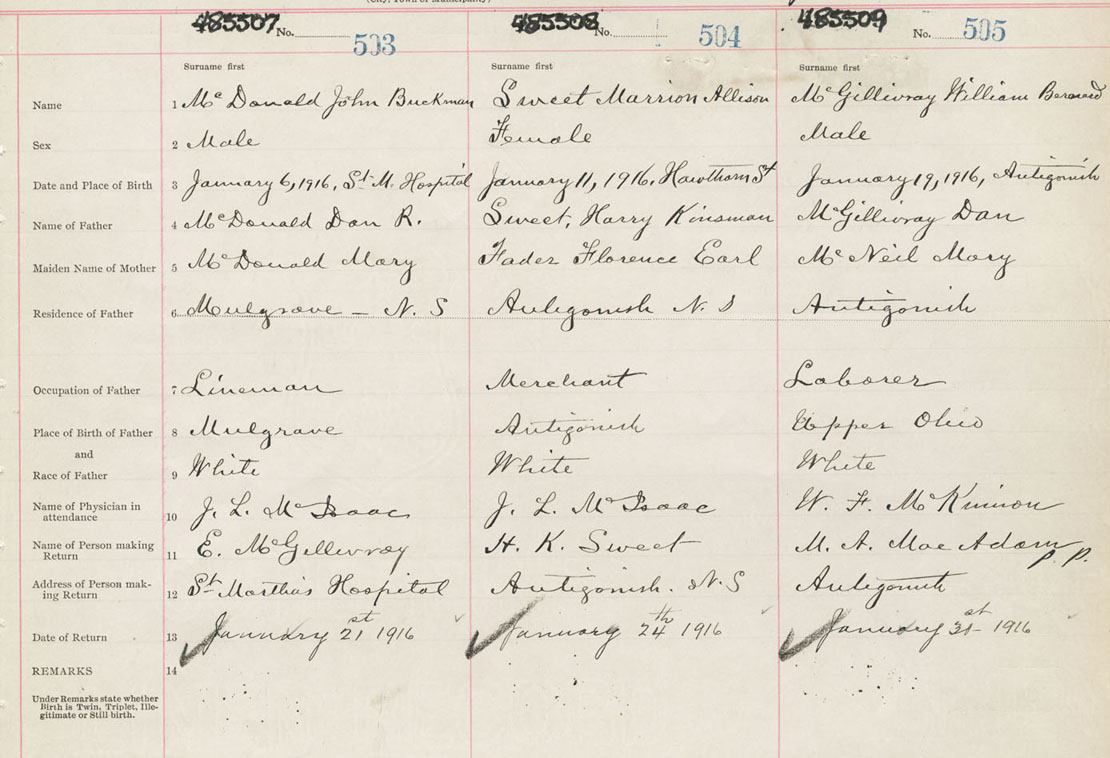 (City, Town or Municipality)
485507 No. 503 485508 No. 504 485509 No. 505
Surname first Surname first Surname first
Name 1 McDonald John Buckman Sweet Marrion Allison McGillivray William Bernard
Sex 2 Male Female Male
Date and Place of Birth 3 January 6, 1916, St. M. Hospital January 11, 1916. Hawthorn St January 19, 1916, Antigonish
Name of Father 4 McDonald Dan R. Sweet, Harry Kinsman McGillivray Dan
Maiden Name of Mother 5 McDonald Mary Fader Florence Earl McNeil Mary
Residence of Father 6 Mulgrave – N. S Antigonish N. S Antigonish
Occupation of Father 7 Lineman Merchant Laborer
Place of Birth of Father 8 Mulgrave Antigonish Upper Ohio
and
Race of Father 9 White White White
Name of Physician in attendance 10 J. L. McIsaac J. L. McIsaac W. F. McKinnon
Name of Person making Return 11 E. McGillivray H. K. Sweet M. A. MacAdam P. P.
Address of Person making Return 12 St Martha's Hospital Antigonish. N. S Antigonish
Date of Return 13 January 21st 1916 January 24th 1916 January 31st 1916
REMARKS 14
Under Remarks state whether
Birth is Twin, Triplet, Ille-
gitimate or Still birth.